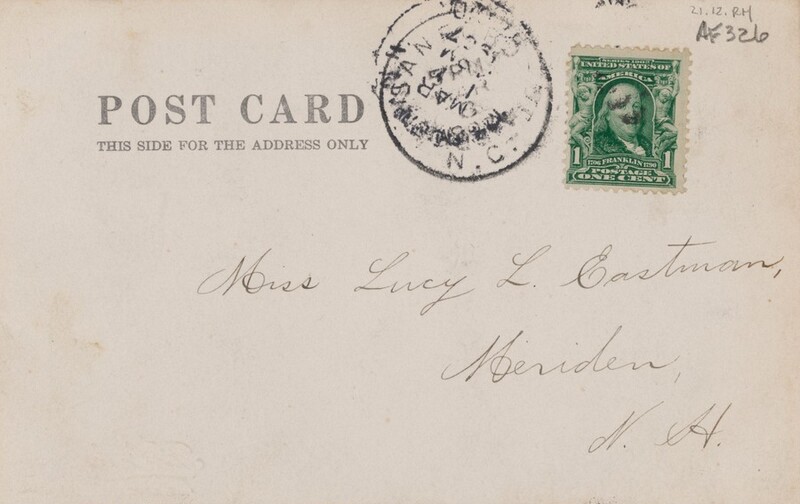 21.12.RM
AF326
SERIES 1902
UNITED STATES OF
AMERICA
POST CARD
THIS SIDE FOR THE ADDRESS ONLY
N.C.
1 1706 FRANKLIN 1790 1
POSTAGE
ONE CENT
Miss Lucy L. Eastman,
Meriden,
N. H.